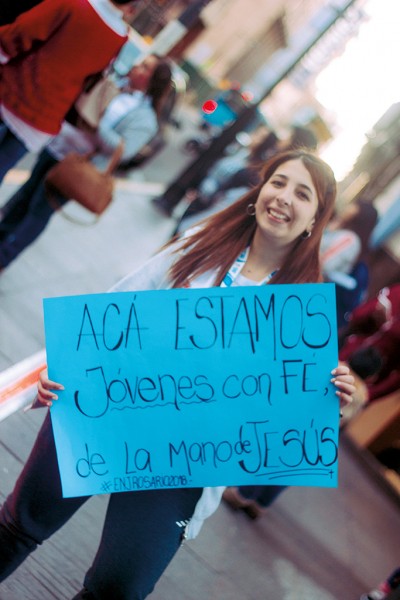 ACÁ ESTAMOS
Jóvenes con FÉ,
de La Mano de JESÚS
#ENJROSARIO2018-